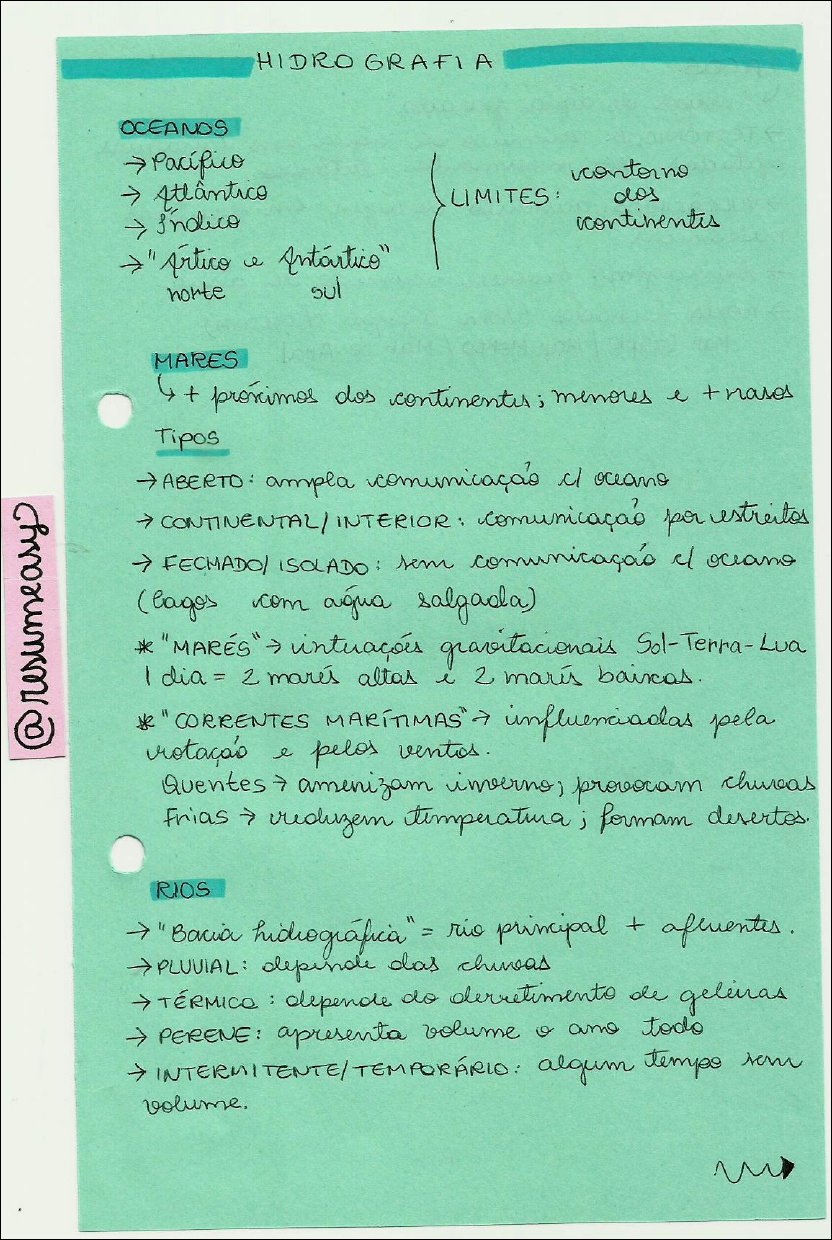 HIDROGRAFIA
OCEANOS
→ Pacífico
→ Atlântico
→ Índico
→ "Ártico e Antártico"
norte sul
LIMITES: contorno
dos
continentes
MARES
↳ + próximos dos continentes; menores e + rasos
Tipos
→ ABERTO: ampla comunicação c/ oceano
→ CONTINENTAL/INTERIOR: comunicação por estreitos
→ FECHADO/ISOLADO: sem comunicação c/ oceano
(lagos com água salgada)
* "MARÉS" → interações gravitacionais Sol-Terra-Lua
1 dia = 2 marés altas e 2 marés baixas.
* "CORRENTES MARÍTIMAS" → influenciadas pela
rotação e pelos ventos.
Quentes → amenizam inverno; provocam chuvas
Frias → reduzem temperatura; formam desertos.
RIOS
→ "Bacia hidrográfica" = rio principal + afluentes.
→ PLUVIAL: depende das chuvas
→ TÉRMICO: depende do derretimento de geleiras
→ PERENE: apresenta volume o ano todo
→ INTERMITENTE/TEMPORÁRIO: algum tempo sem
volume.
@resumeasy